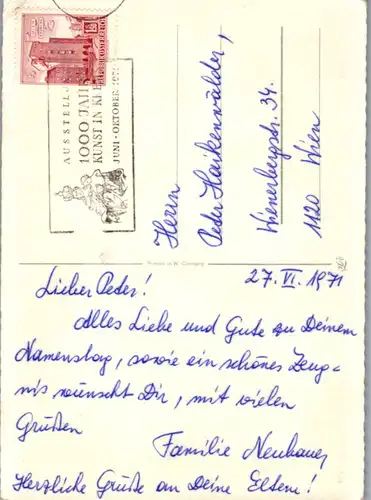 AUSSTELL
1000 JAH
KUNST IN KRE
JUNI - OKTOBER 1971
REPUBLIK ÖSTERREICH
Herrn
Peter Haikenwälder,
Wienerbergstr. 34.
1120 Wien
Printed in W. Germany
27. VI. 1971
Lieber Peter!
Alles Liebe und Gute zu Deinem
Namenstag, sowie ein schönes Zeug-
nis wünscht Dir, mit vielen
Grüßen
Familie Neuhauer
Herzliche Grüße an Deine Eltern!